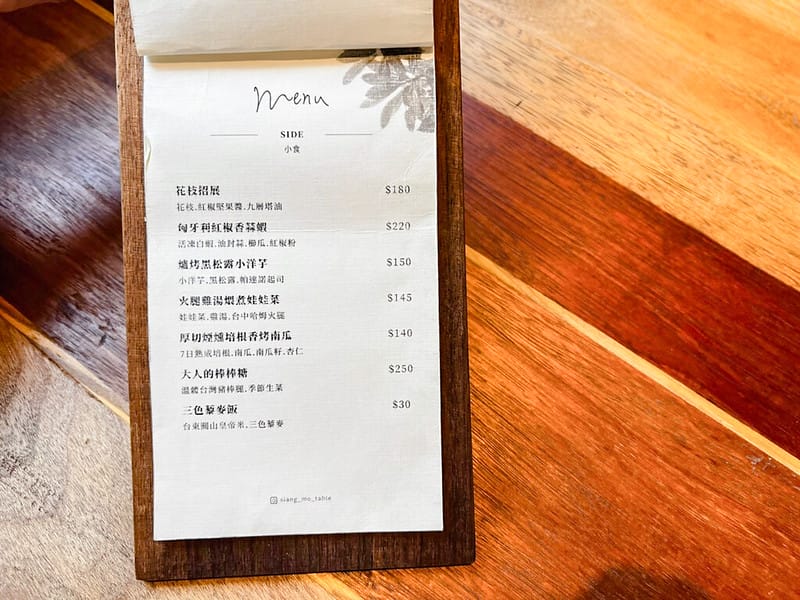 Menu
SIDE
小食
花枝招展 $180
花枝.紅椒堅果醬.九層塔油
匈牙利紅椒香蒜蝦 $220
活凍白蝦.油封蒜.櫛瓜.紅椒粉
爐烤黑松露小洋芋 $150
小洋芋.黑松露.帕達諾起司
火腿雞湯煨煮娃娃菜 $145
娃娃菜.雞湯.台中哈姆火腿
厚切煙燻培根香烤南瓜 $140
7日熟成培根.南瓜.南瓜籽.杏仁
大人的棒棒糖 $250
溫體台灣豬棒腿.季節生菜
三色藜麥飯 $30
台東關山皇帝米.三色藜麥
siang_mo_table